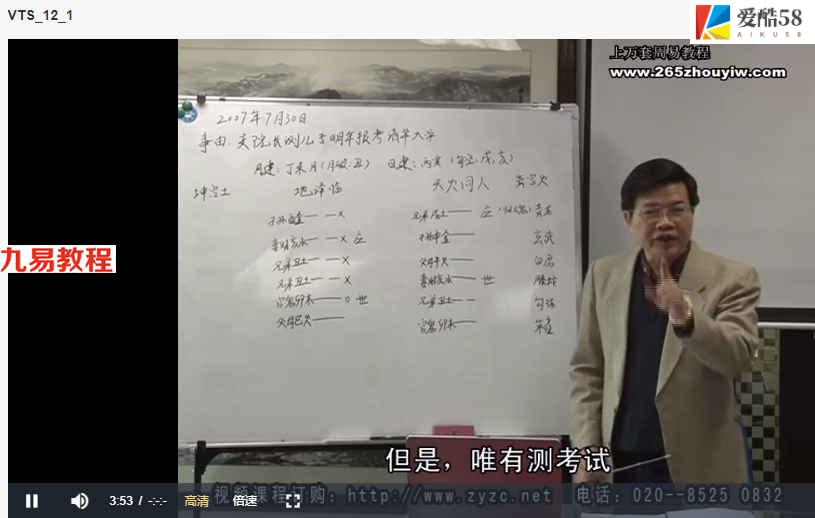 VTS_12_1
爱酷58
AIKU58
上万套周易教程
www.265zhouyiw.com
2007年7月30日
事由: 测儿子明年报考清华大学
月建: 丁未月(月破:丑) 日建: 丙寅 (旬空:戌、亥)
坤宫土 地泽临 天火同人 离宫火
九易教程
兄弟戌土 应 青龙
子孙申金 玄武
兄弟丑土 X 父母午火 白虎
兄弟丑土 X 妻财亥水 世 螣蛇
官鬼卯木 O 世 兄弟丑土 勾陈
父母巳火 官鬼卯木 朱雀
但是，唯有测考试
视频课程订购: http://www.zyzc.net 电话: 020--8525 0832
3:53 / -:-
高清
倍速